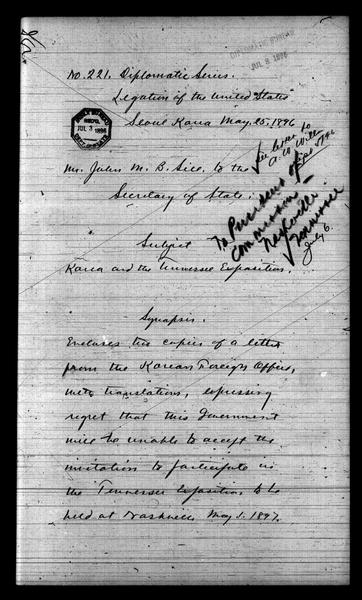 DIPLOMATIC BUREAU
JUL 8 1896
No. 221. Diplomatic Series.
Legation of the United States
Seoul Korea May 25, 1896
JUL 3 1896
DEPT. OF STATE
Mr. John M. B. Sill, to the
Secretary of State.
See letter to
A. W. Wills
To President of
Commission
Nashville
Tennessee
July 6.
Subject
Korea and the Tennessee Exposition.
Synopsis.
Encloses two copies of a letter
from the Korean Foreign Office,
with translations, expressing
regret that this Government
will be unable to accept the
invitation to participate in
the Tennessee Exposition to be
held at Nashville, May 1. 1897.